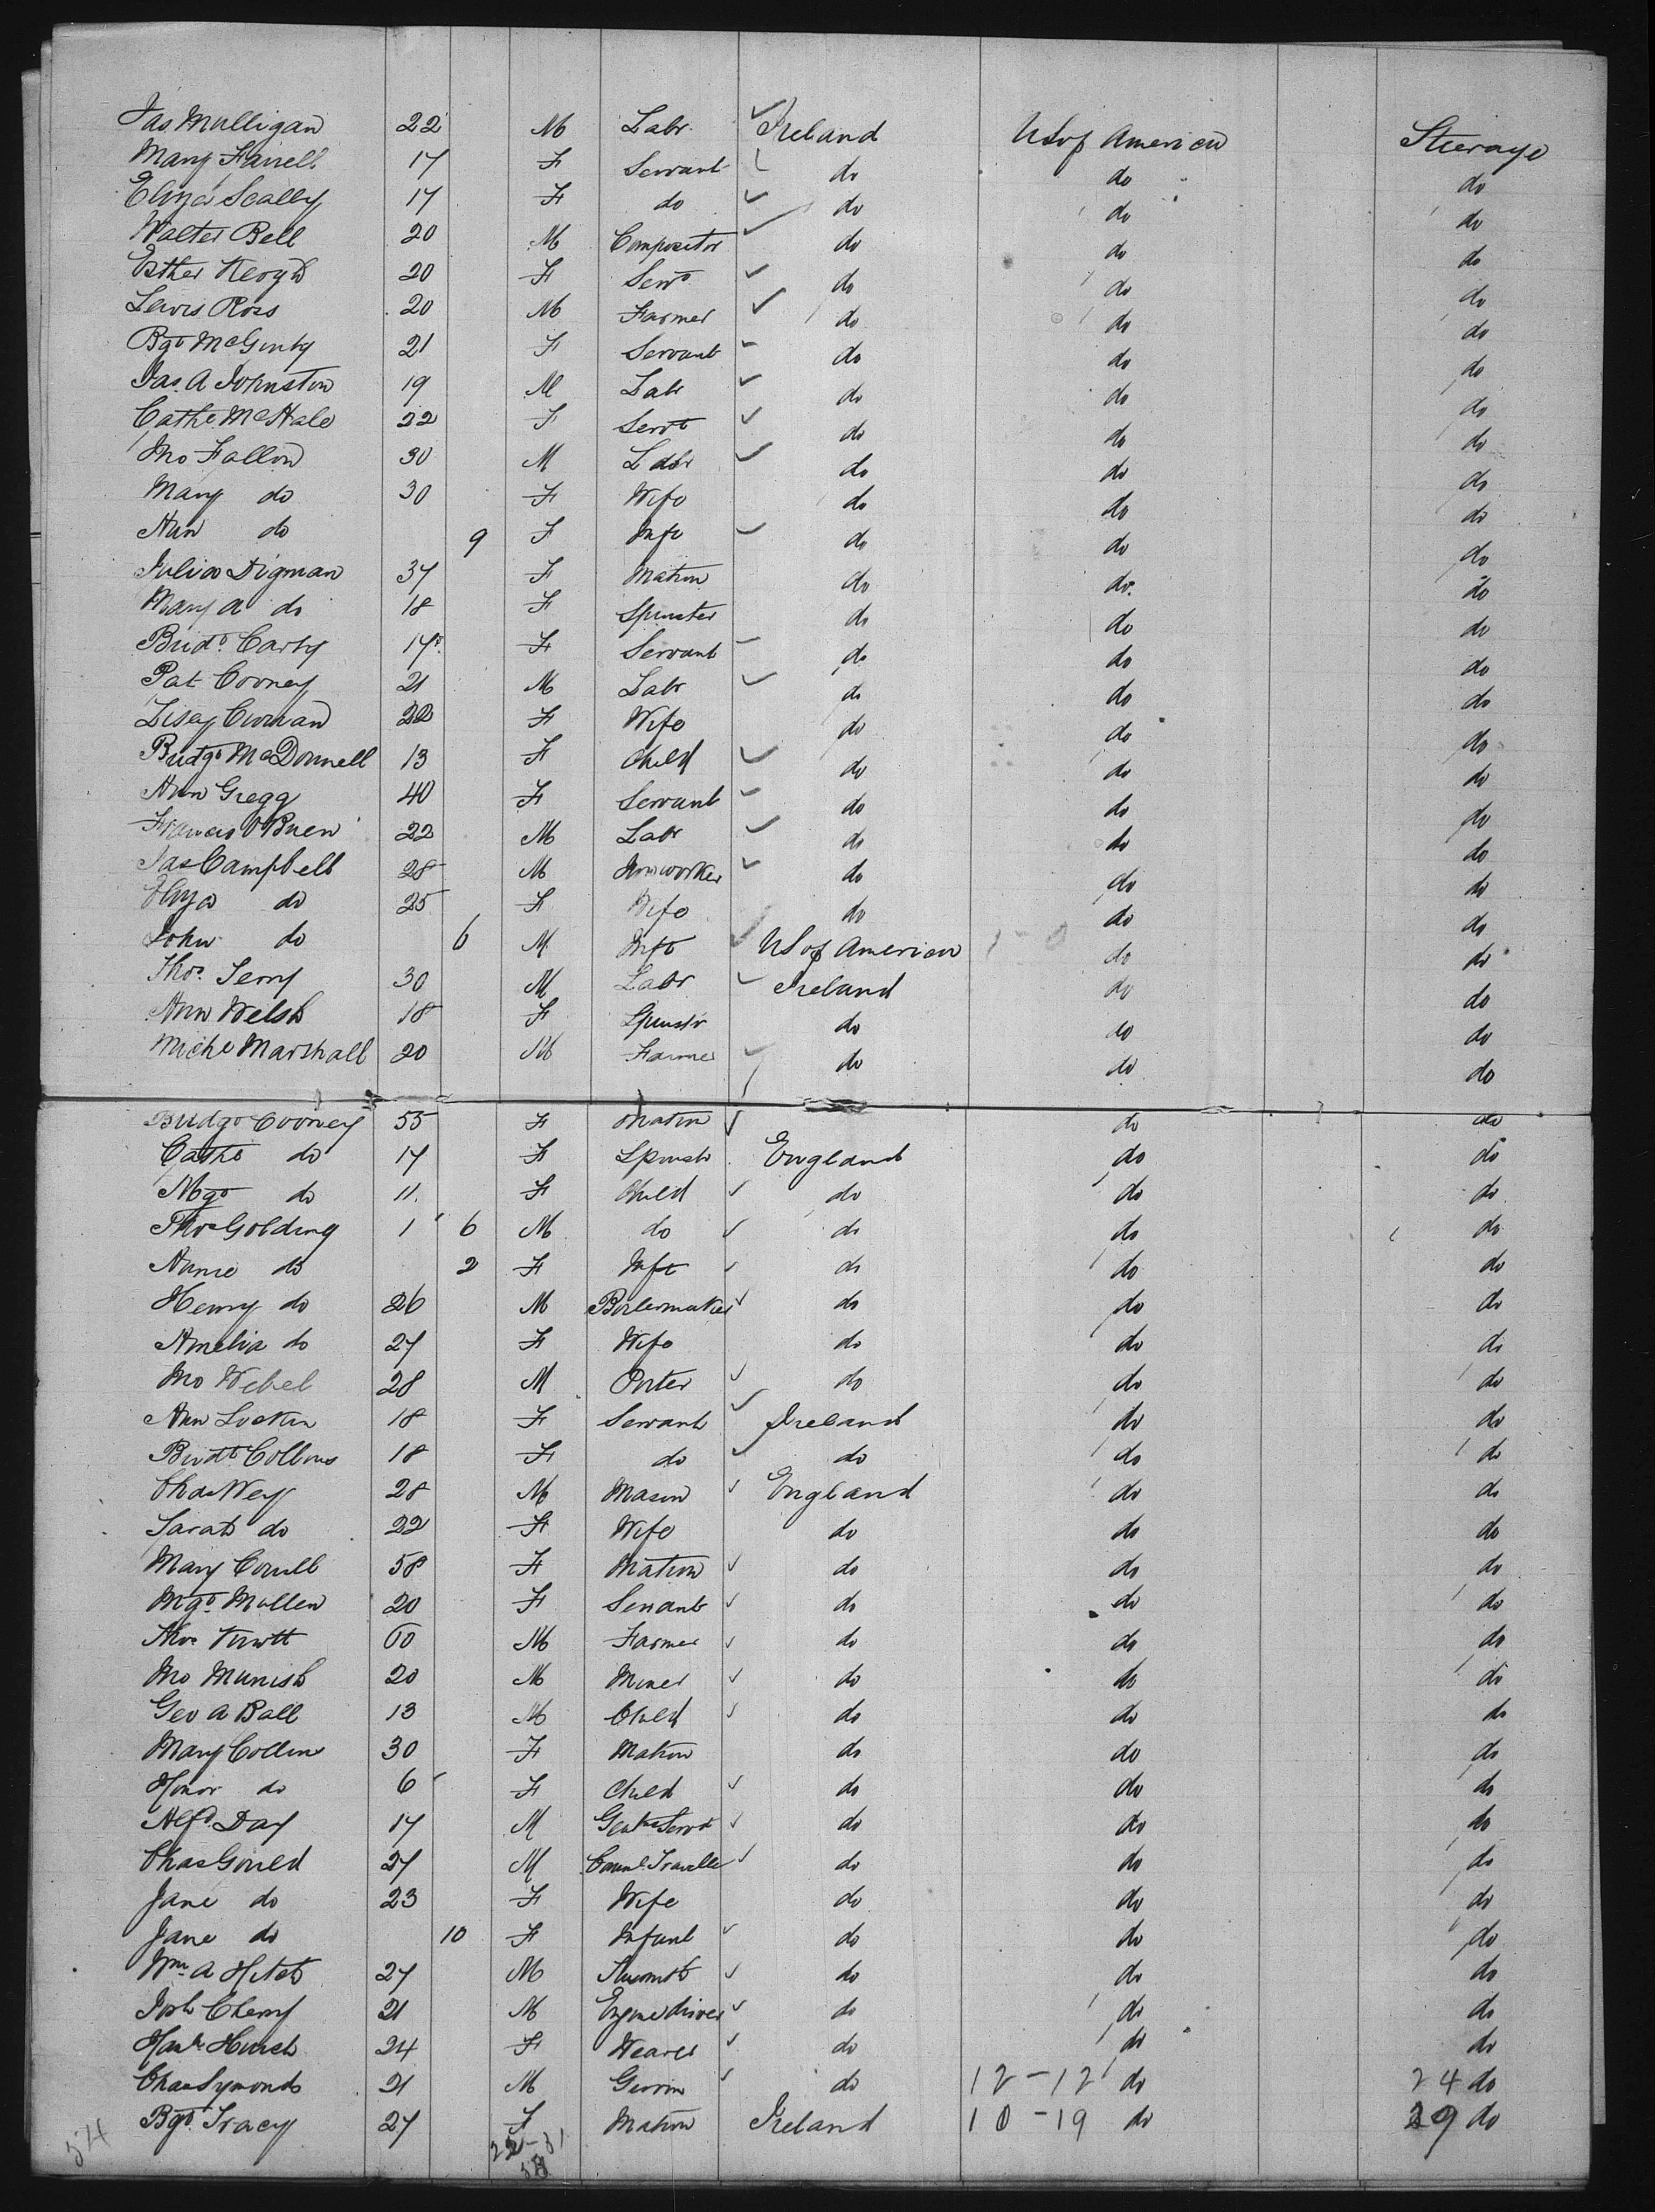 Jas Mulligan 22 M Labr Ireland US of America Steerage
Mary Farrell 17 F Servant do do do
Eliza Scally 17 F do do do do
Walter Bell 20 M Compositor do do do
Esther Keogh 20 F Servt do do do
Lewis Ross 20 M Farmer do do do
Bgt McGinty 21 F Servant do do do
Jas. A Johnston 19 M Labr do do do
Cathe McHale 22 F Servt do do do
Jno Fallon 30 M Labr do do do
Mary do 30 F Wife do do do
Ann do 9 F Inft do do do
Julia Digman 37 F Matron do do do
Mary A do 18 F Spinster do do do
Bridt Carty 17 F Servant do do do
Pat Cooney 21 M Labr do do do
Lizey Curran 22 F Wife do do do
Bridgt McDonnell 13 F Child do do do
Ann Gregg 40 F Servant do do do
Francis O'Brien 22 M Labr do do do
Jas Campbell 28 M Ironworker do do do
Eliza do 25 F Wife do do do
John do 6 M Inft US of America do do
Thos. Terry 30 M Labr Ireland do do
Ann Welsh 18 F Spinstr do do do
Michl Marshall 20 M Farmer do do do
Bridgt Cooney 55 F Matron do do
Cathe do 17 F Spinstr England do do
Mgt do 11 F Child do do do
Thos Golding 1 6 M do do do do
Annie do 2 F Inft do do do
Henry do 26 M Boilermaker do do do
Amelia do 27 F Wife do do do
Jno Webel 28 M Porter do do do
Ann Lockin 18 F Servant Ireland do do
Bridt Collins 18 F do do do do
Chas Wey 28 M Mason England do do
Sarah do 22 F Wife do do do
Mary 58 F Matron do do do
Mgt. Mullen 20 F Servant do do do
Thos 60 M Farmer do do do
Jno Munish 20 M Miner do do do
Geo A Ball 13 M Child do do do
Mary Collins 30 F Matron do do do
Honor do 6 F Child do do do
Alfd. Day 17 M Gentns Servt do do do
Chas Gould 27 M Comml. Traveller do do do
Jane do 23 F Wife do do do
Jane do 10 F Infant do do do
Wm. A Hitch 27 M do do do
Josh Cherry 21 M Engine driver do do do
Hanh Hirsch 24 F Weaver do do do
Chas Symonds 21 M Groom do 12-12 do 24 do
Bgt. Tracy 27 F Matron Ireland 10-19 do 29 do
54